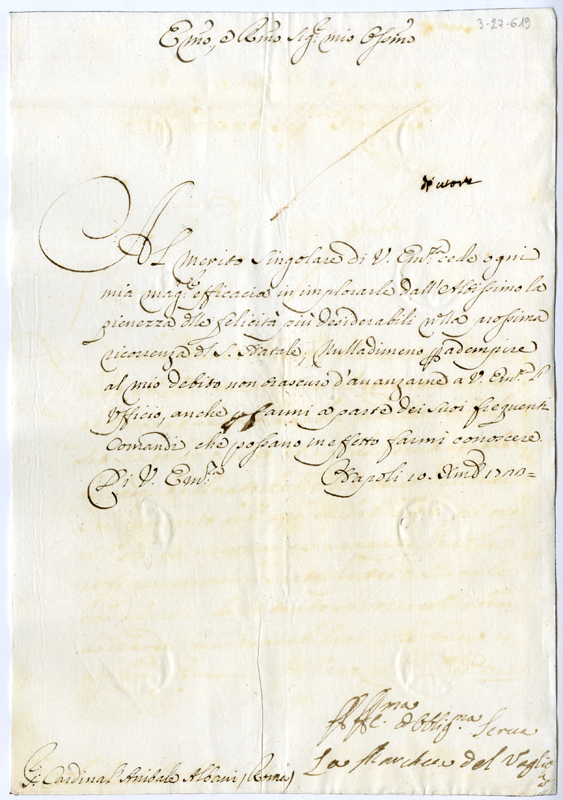 3-27-619
Emo, e Rmo Sigr mio Ossmo
Al merito singolare di V. Emza cede ogni
mia magr efficacia in implorarle dall'Altissimo la
pienezza delle felicità più desiderabili nella prossima
ricorrenza del S. Natale; Nulladimeno p adempire
al mio debito non trascuro d'avanzarne a V. Emza l'
Ufficio, anche p farmi a parte dei suoi frequenti
Comandi, che possano in effetto farmi conoscere
Di V. Emza Napoli 10. Xmb
Affma e Obligma Serva
La Marchesa del Vaglio
Sr Cardinal Anibale Albani (Roma)